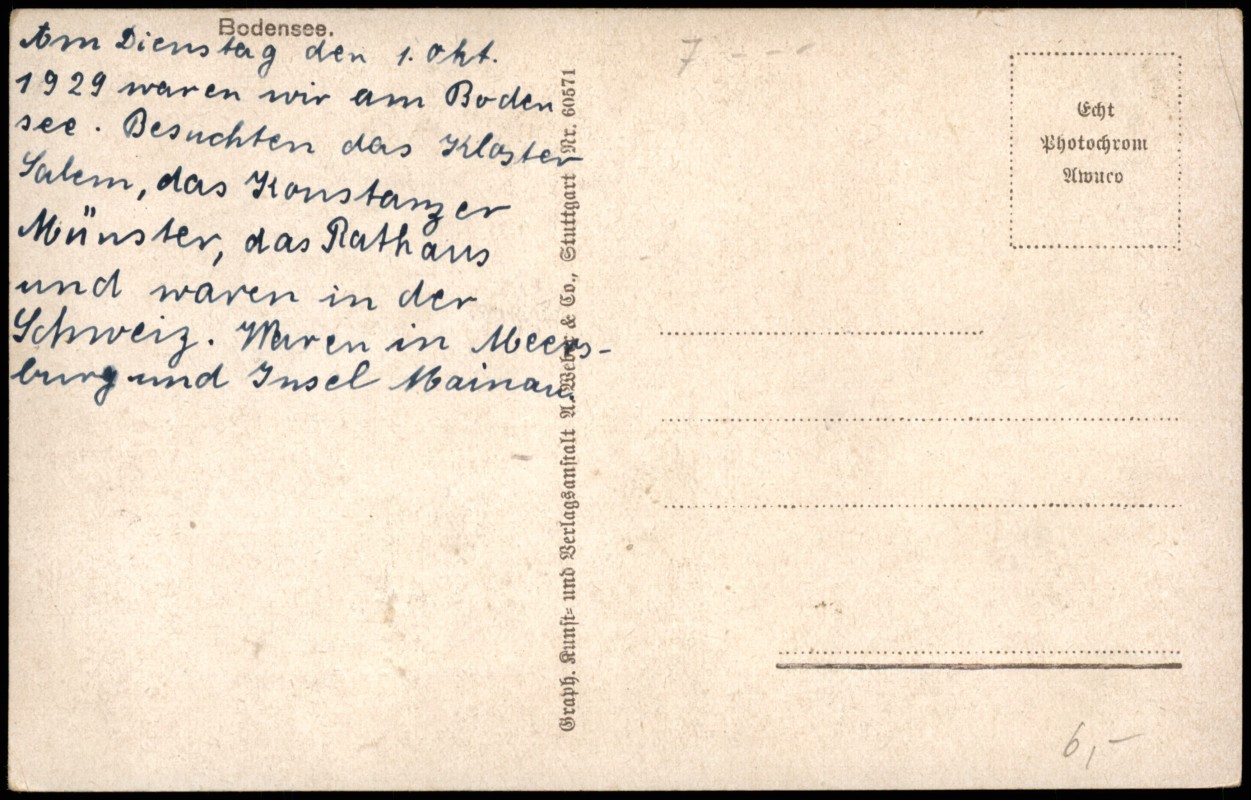 Bodensee.
Am Dienstag den 1. Okt.
1929 waren wir am Boden
see. Besuchten das Kloster
Salem, das Konstanzer
Münster, das Rathaus
und waren in der
Schweiz. Waren in Meers-
burg und Insel Mainau.
Graph. Kunst- und Verlagsanstalt A. Weber & Co., Stuttgart Nr. 60571
7
Echt
Photochrom
Awuco
6,-